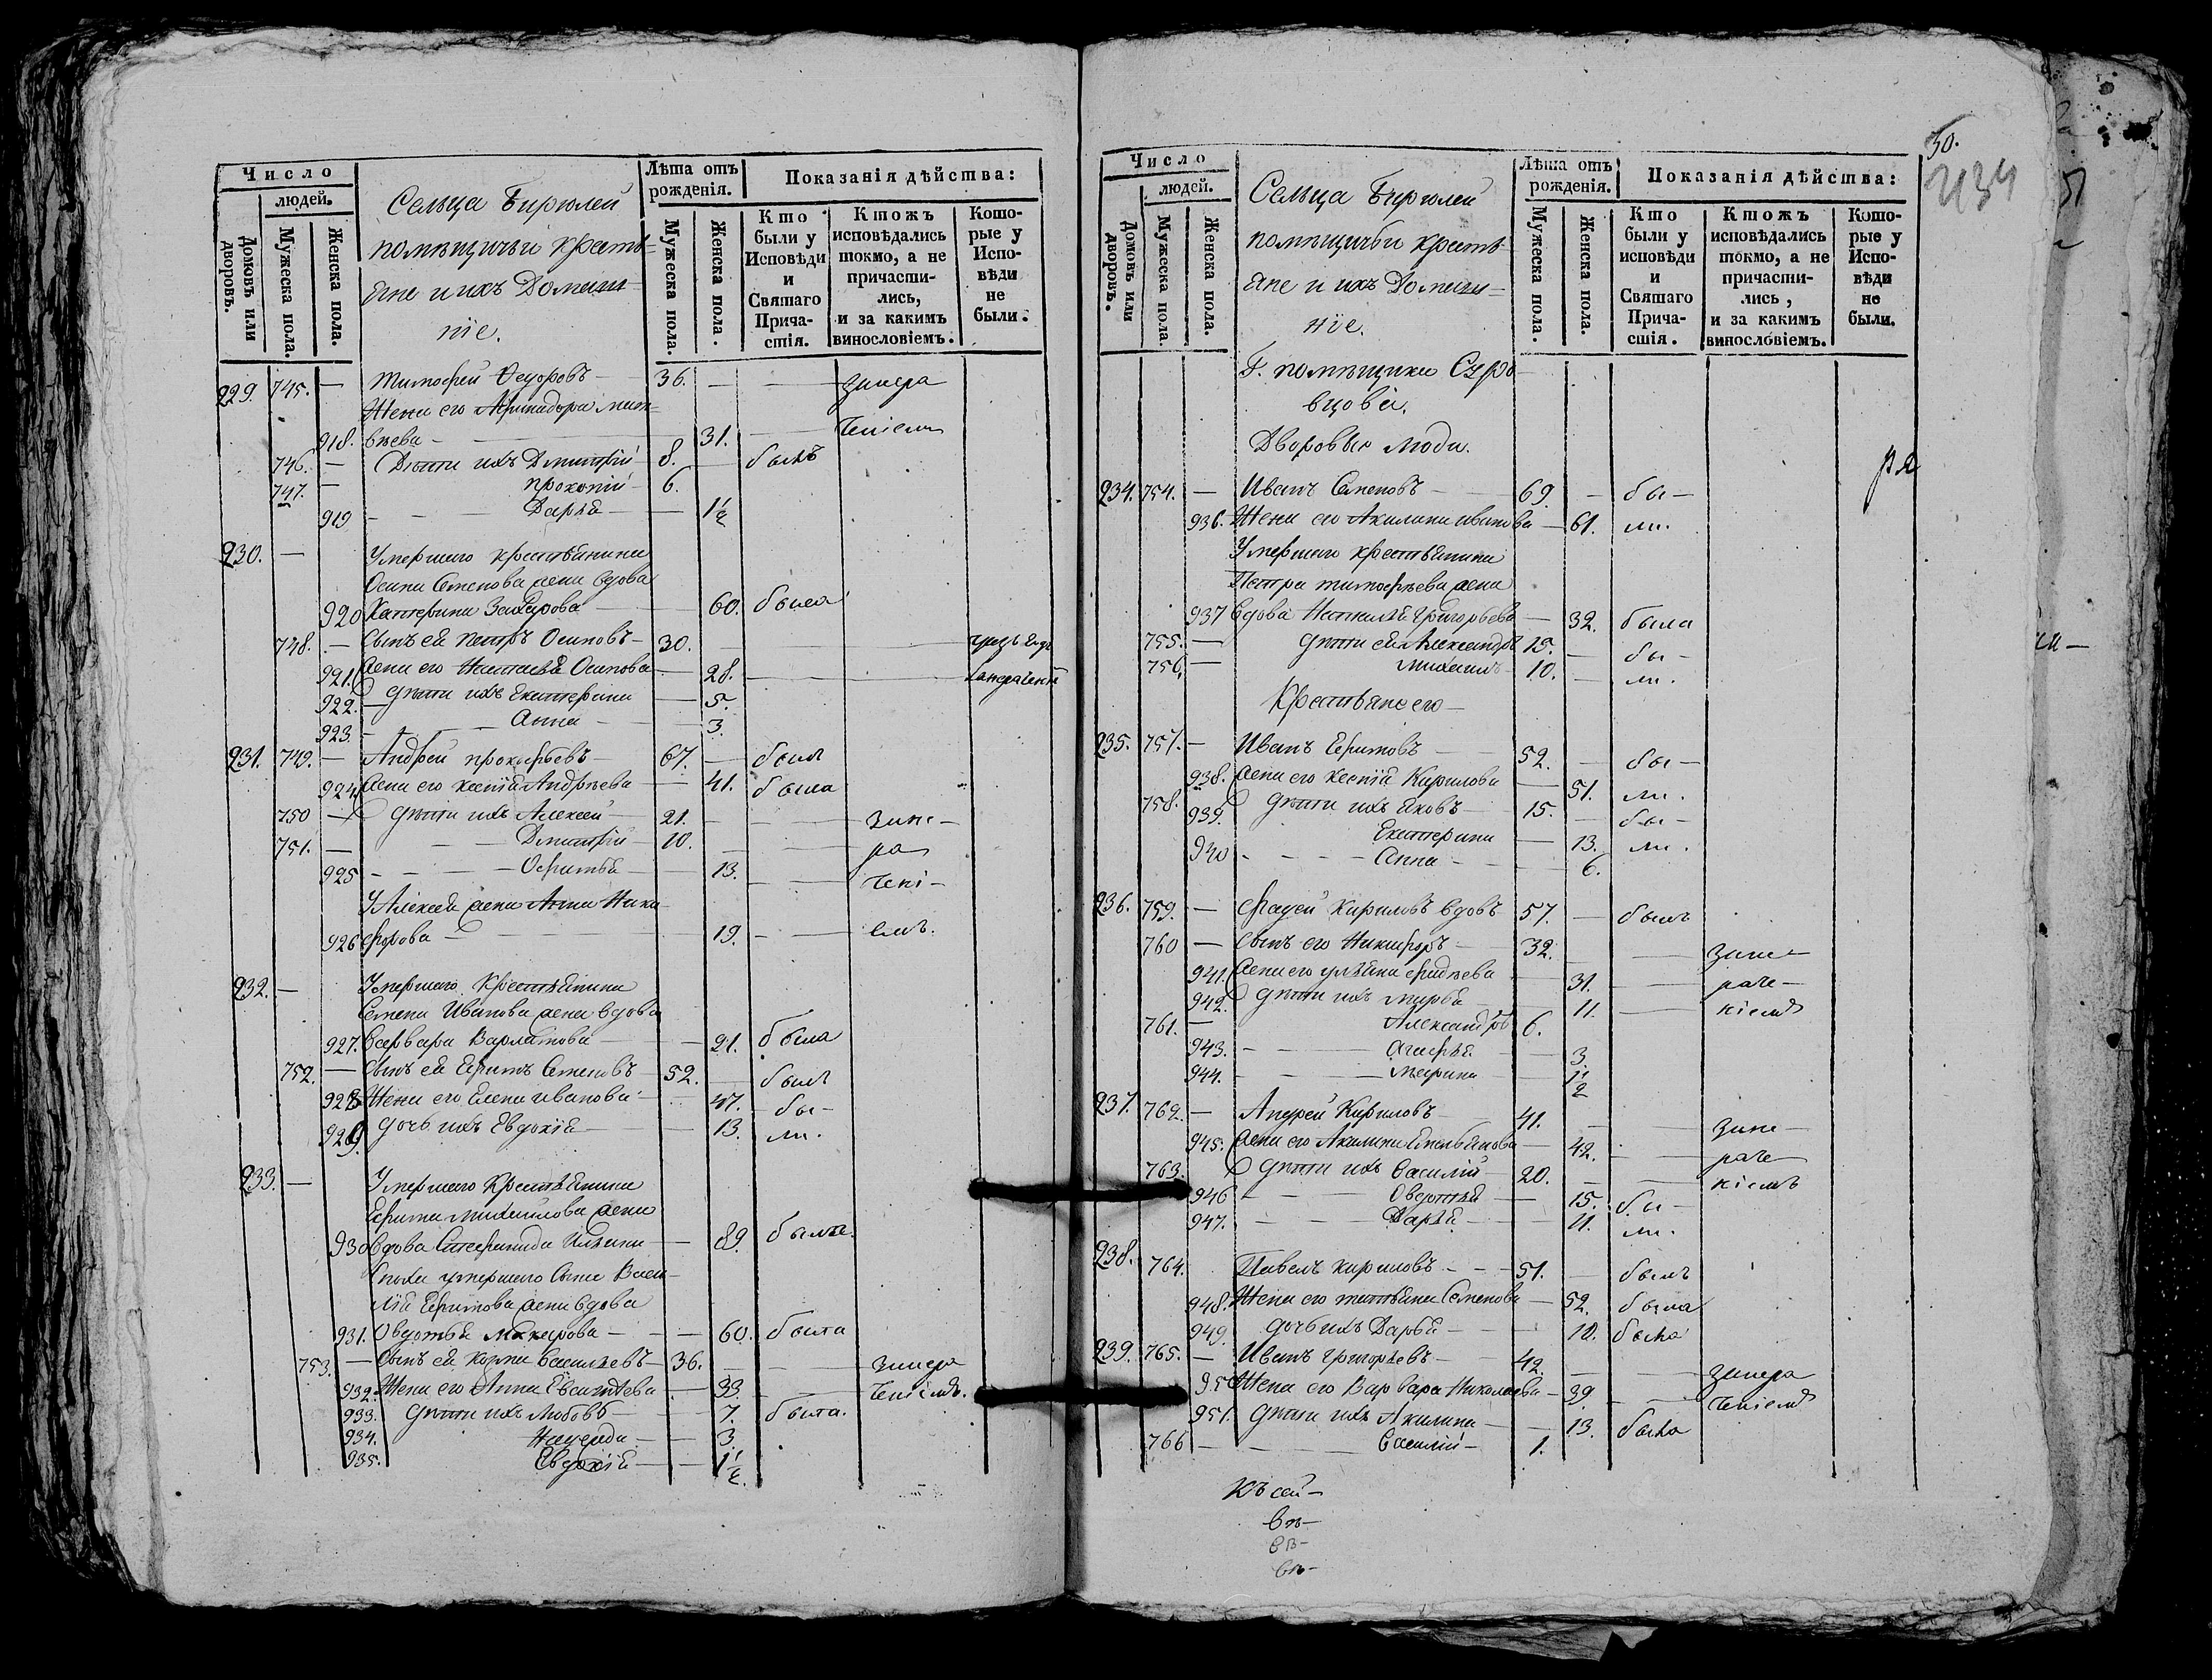 Число
людей.
Домовъ или дворовъ.
Мужеска пола.
Женска пола.
Сельца Бирюлей
помѣщичьи крестья=
яне и ихъ Домаш=
ніе.
Лѣта отъ рожденія.
Мужеска пола.
Женска пола.
Показанія дѣйства:
Кто были у Исповѣди и Святаго Причастія.
Ктожъ исповѣдались токмо, а не причасти-лись, и за какимъ винословіемъ.
Кото-рые у Испо-вѣди не были.
229. 745. — Тимофей Ѳедоровъ — 36. — — занера
Жена его
918. вѣева — 31. — ченіемъ
746. — Дѣти ихъ Дмитрій — 8. — былъ
747. — Прокопій — 6.
919 — Дарья — 1½
230. — Умершаго крестьянина
Осипа Семенова жена вдова
920 Катерина Захарова — 60. была
748. — Сынъ ея Петръ Осиповъ — 30.
921. жена его Наталья Осипова — 28.
922. — дѣти ихъ Екатерина — 5.
923. — Анна — 3.
231. 749. — Андрей Прокофьевъ — 67. — былъ
924 жена его Ксенія Андрѣева — 41. была
750 — дѣти ихъ Алексей — 21. — — зане-
751. — Дмитрій — 10. — ра
925 — Офимья — 13. — чені-
У Алексея жена Анна Ники
926 форова — 19. — емъ.
232. — Умершаго Крестьянина
Семена Иванова жена вдова
927. Варвара Варламова — 21. была
752. — Сынъ ея Ефимъ Семеновъ — 52. — былъ
928 Жена его Елена Иванова — 47. бы-
929 дочь ихъ Евдокія — 13. ли.
233. — Умершаго Крестьянина
Ефима Михайлова жена
930 вдова — 89. была.
умершаго сына Васи-
лія Ефимова жена вдова
931. Овдотья Макарова — — 60. была
753. — Сынъ ея Козма Васильевъ — 36. — — занера
932. Жена его Анна — 33. — ченіемъ.
933. дѣти ихъ Любовь — 7. была.
934. — 3.
935. Евдокія — — 1½.
30.
434
Число
людей.
Домовъ или дворовъ.
Мужеска пола.
Женска пола.
Сельца Бирюлей
помѣщичьи кресть-
яне и ихъ Домаш=
ніе.
Лѣта отъ рожденія.
Мужеска пола.
Женска пола.
Показанія дѣйства:
Кто были у исповѣди и Святаго Прича-стія.
Ктожъ исповѣдались токмо, а не причасти-лись, и за какимъ винословіемъ.
Кото-рые у Испо-вѣди не были.
Г. помѣщика Суро
вцова.
Дворовыя люди.
234. 754. — Иванъ Семеновъ — 69 — бы —
936. Жена его Акилина Иванова — 61. ли.
Умершаго крестьянина
Петра Тимофѣева жена
937 вдова Наталья Григорьева — 32. была
755. — дѣти ея Александръ 15. — бы —
756. — Михаилъ — 10. — ли.
Крестьяне его —
235. 757. — Иванъ Ефимовъ — 52. — бы —
938. жена его Ксенія Кирилова — 51. ли.
758. дѣти ихъ Яковъ — 15. — бы —
939. Екатерина — 13. ли.
940 — Анна — 6.
236. 759. — Фадей Кириловъ вдовъ — 57. — былъ
760 — сынъ его Никифоръ — 32. — зане —
941. жена его Ульяна — 31. — раче —
942. дѣти ихъ Марѳа — 11. — ніемъ
761. — Александръ 6.
943. — Агафья — 3.
944. — Марина — ½
237. 762. — Андрей Кириловъ — 41. — зане —
945. жена его Акилина Емельянова — 42. — раче —
763. дѣти ихъ Василій — 20. — ніемъ
946 — Овдотья — 15. бы —
947. — Дарья — 11. ли.
238. 764. Павелъ Кириловъ — 51. — былъ
948. Жена его Татьяна Семенова — 52. была
949. дочь ихъ Дарья — 10. была
239. 765. — Иванъ Григорьевъ — 42. — занера
950 Жена его Варвара Николаева — 39. — ченіемъ
951. дѣти ихъ Акилина — 13. была
766 — Василій — 1.
Къ сей —